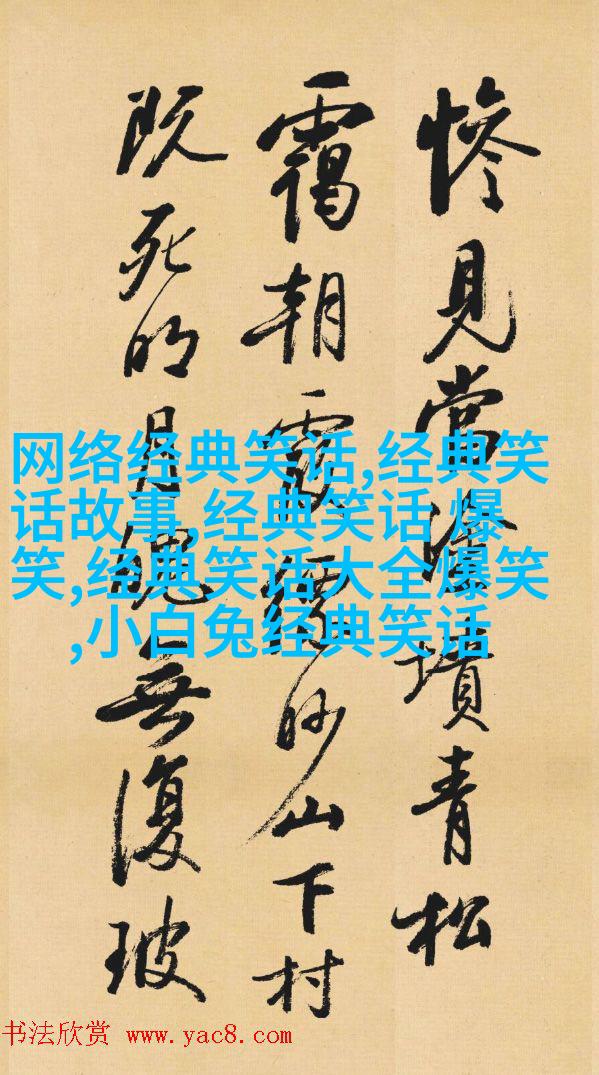 慘見當塗墳青松
靄朝霞縹眇山下村
既死明月魄無復玻
网络经典笑话,经典笑
话故事,经典笑话 爆
笑,经典笑话大全爆笑
,小白兔经典笑话
书法欣赏 www.yac8.com